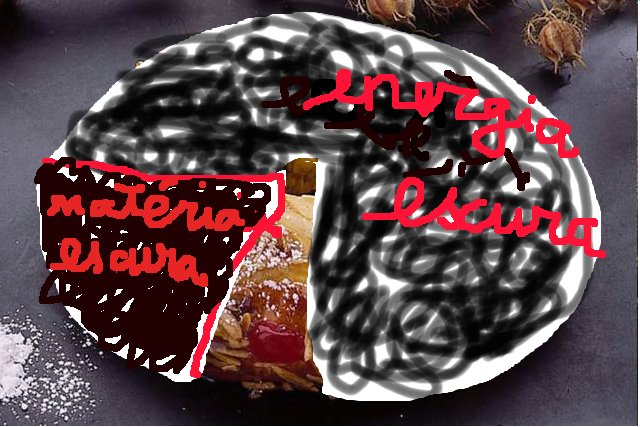 energia
escura
matéria
escura